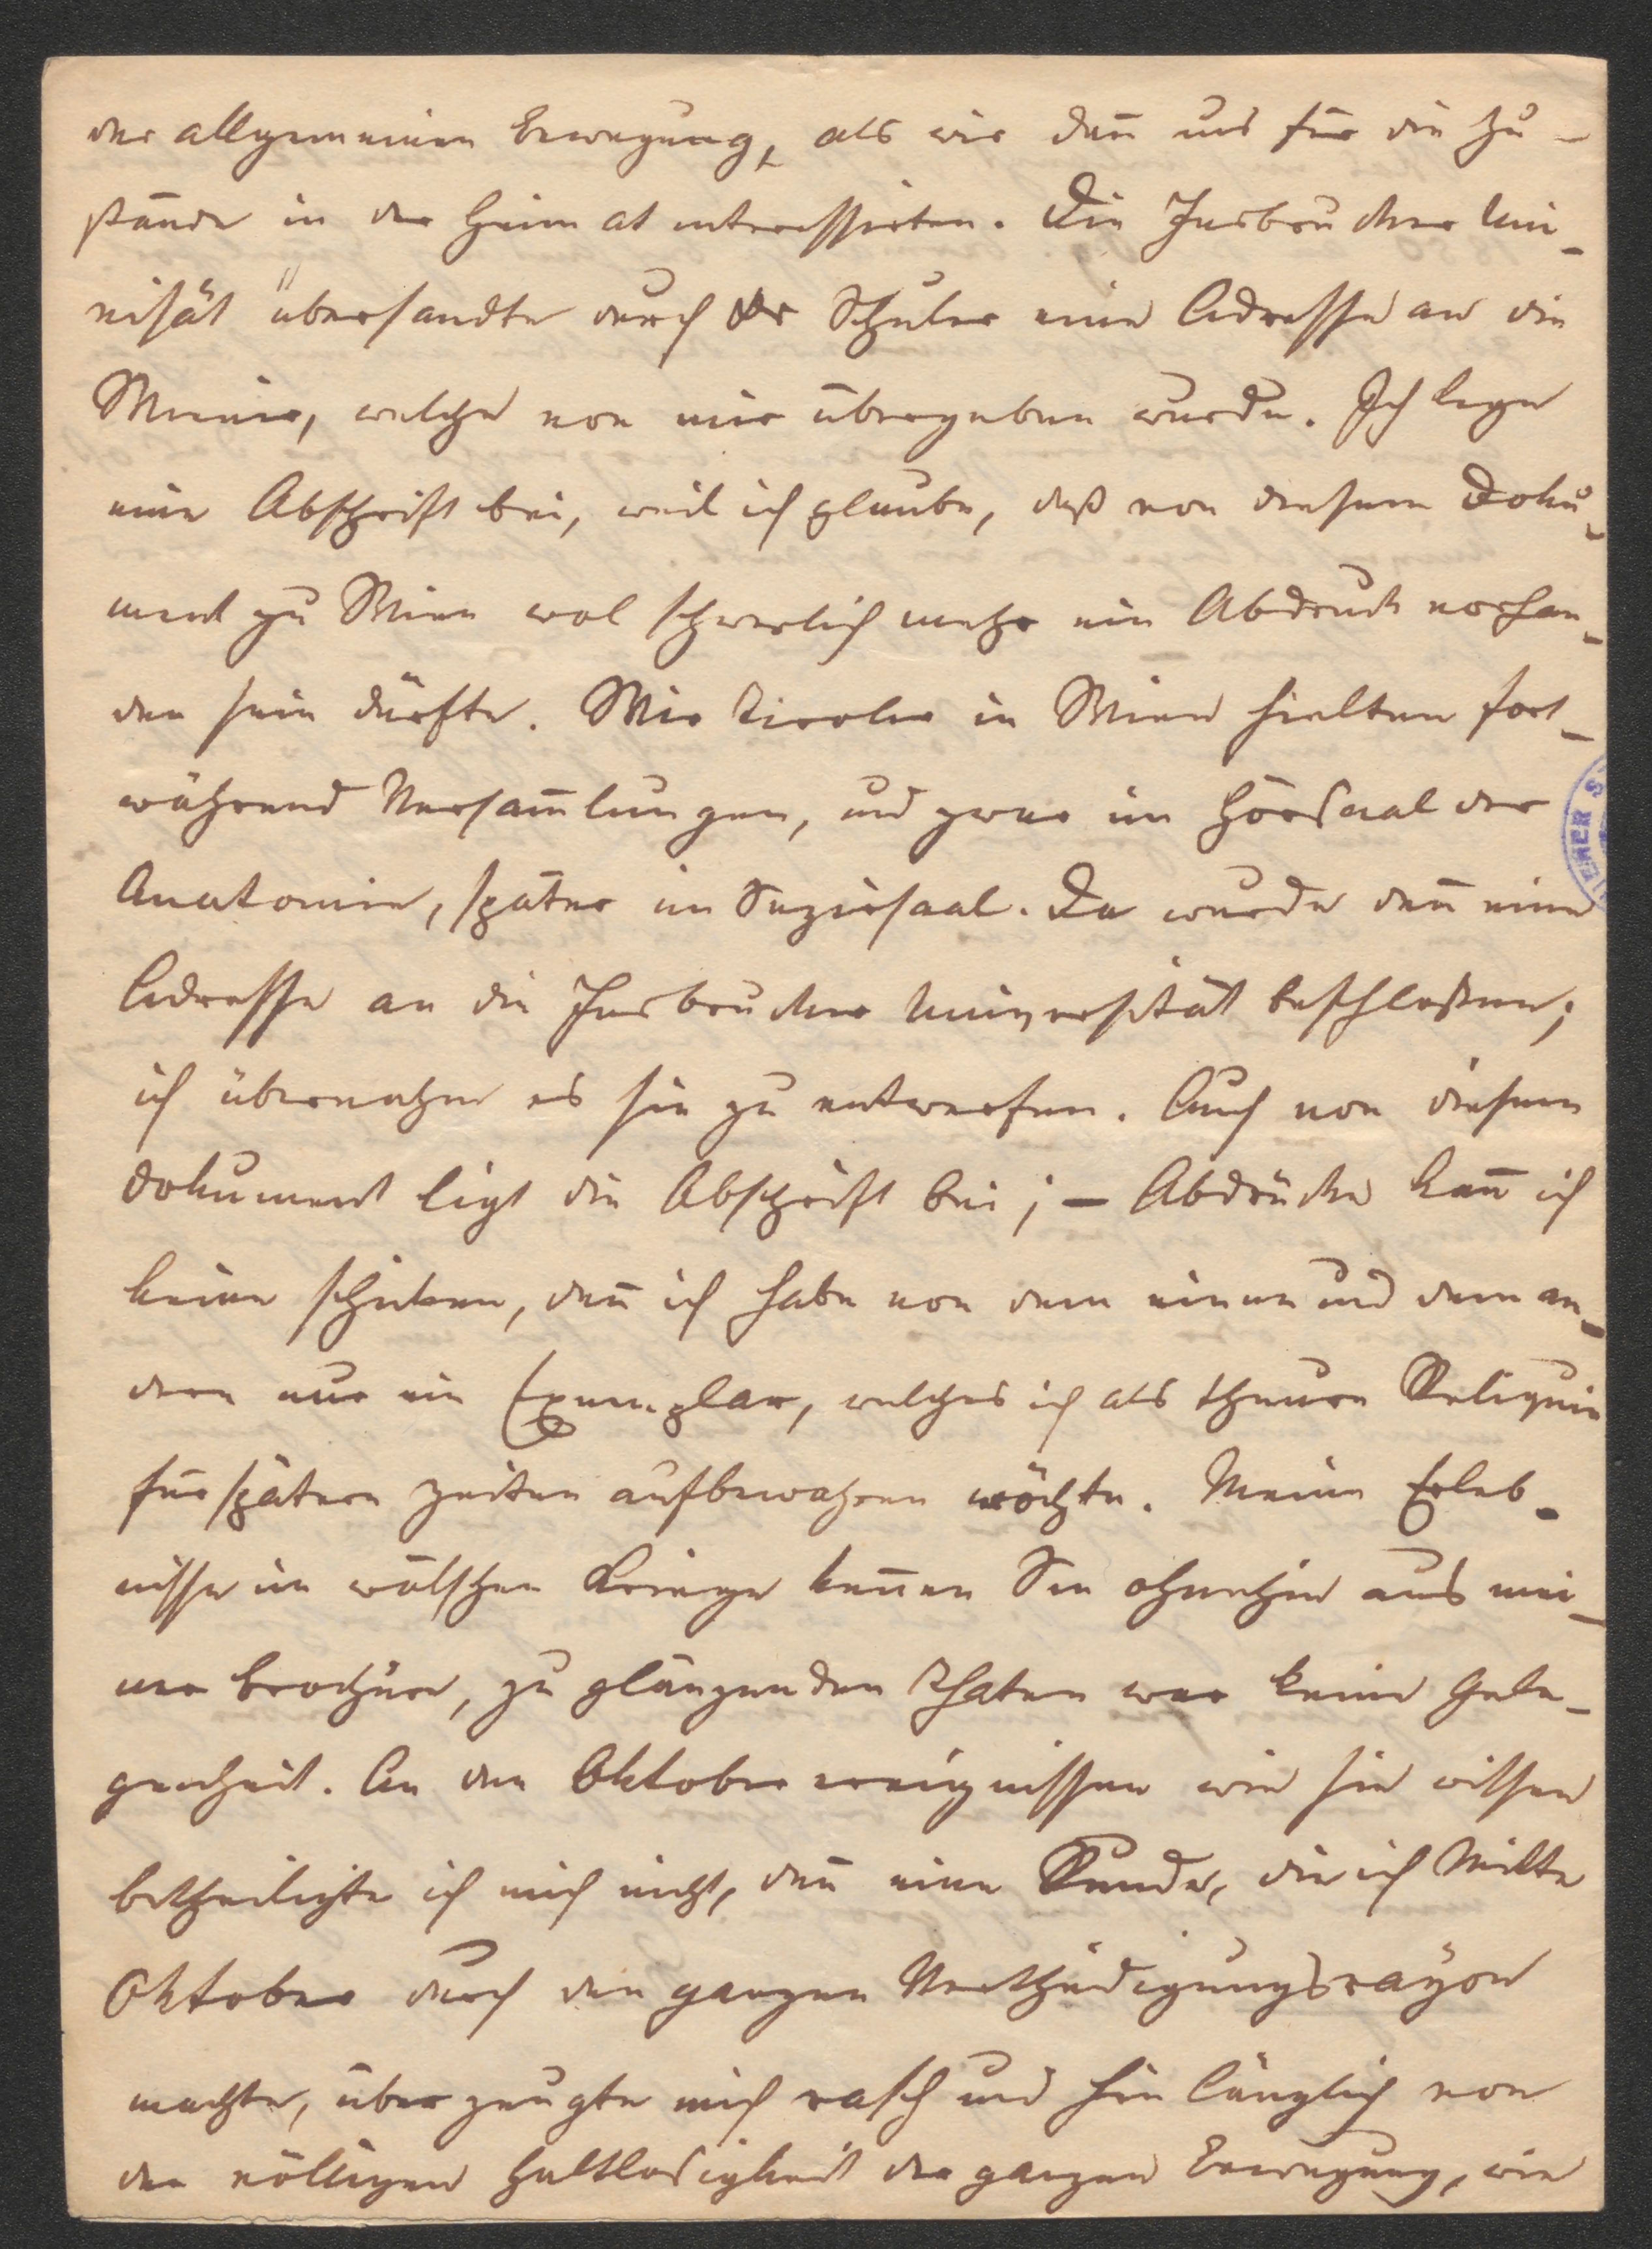 der allgemeinen Bewegung, als wir dañ uns für die Zu-
stände in der Heimat interessirten. Die Insbrucker Uni-
nisät übersandte durch Dr Schuler eine Adresse an die
Wiener, welche von mir übergeben wurde. Ich lege
eine Abschrift bei, weil ich glaube, daß von diesem Doku-
ment zu Wien wol schwerlich mehr ein Abdruck vorhan-
den sein dürfte. Wir Tiroler in Wien hielten fort-
während Versam̄lungen, und zwar im Hörsaal der
Anatomie, später im Sezirsaal. Da wurde deñ eine
Adresse an die Insbrucker Universität beschloßen;
ich übernahm es sie zu entwerfen. Auch von diesem
Dokument ligt die Abschrift bei; – Abdrücke kañ ich
keine schicken, deñ ich habe von dem einen und dem an-
dern nur ein Exemplar, welches ich als theure Reliquie
für spätere Zeiten aufbewahren möchte. Meine Erleb-
nisse im wälschen Kriege keñen Sie ohnehin aus mei-
ner Brochüre, zu glänzenden Thaten war keine Gele-
genheit. An den Oktoberereignissen wie sie wissen
betheiligte ich mich nicht, deñ eine Runde, die ich Mitte
Oktober durch den ganzen Vertheidigungsrayon
machte, überzeugte mich rasch und hinlänglich von
der völligen Haltlosigkeit der ganzen Bewegung, wie
IENER S